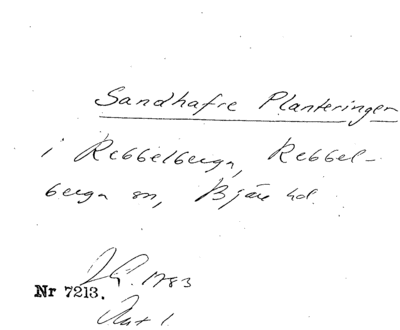 Sandhafre Planteringer
i Rebbelberga, Rebbel-
berga sn, Bjäre hd.
1783
Nr 7213.